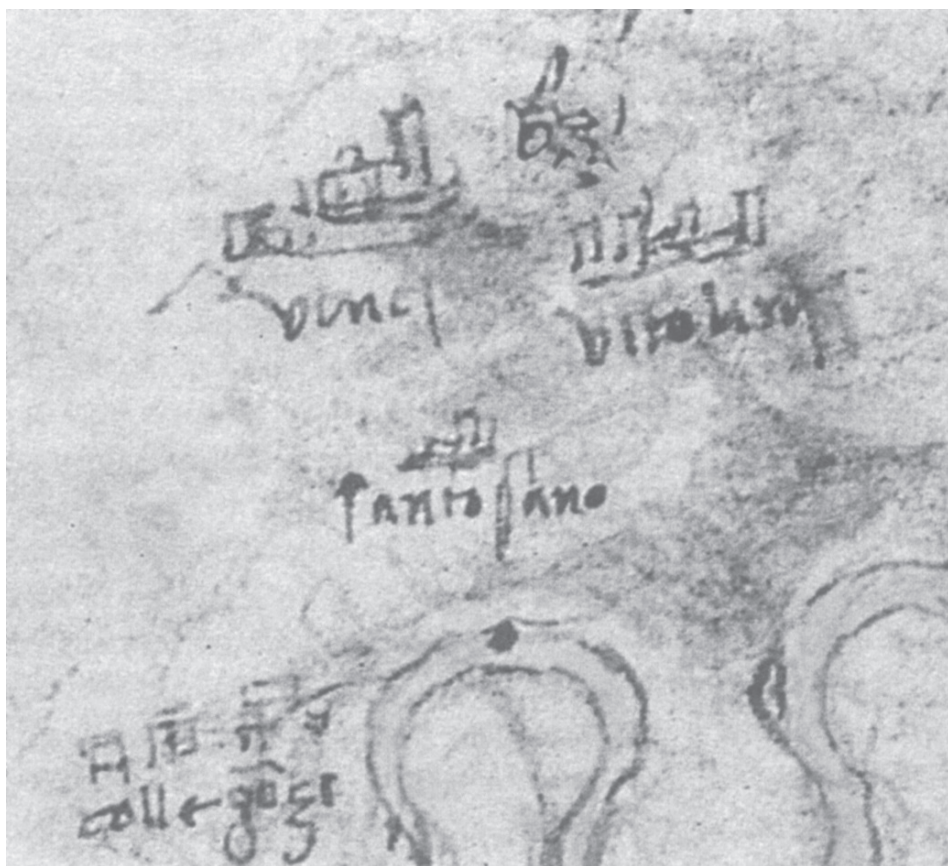 vinci
vitolini
santo sano
colle gōzi